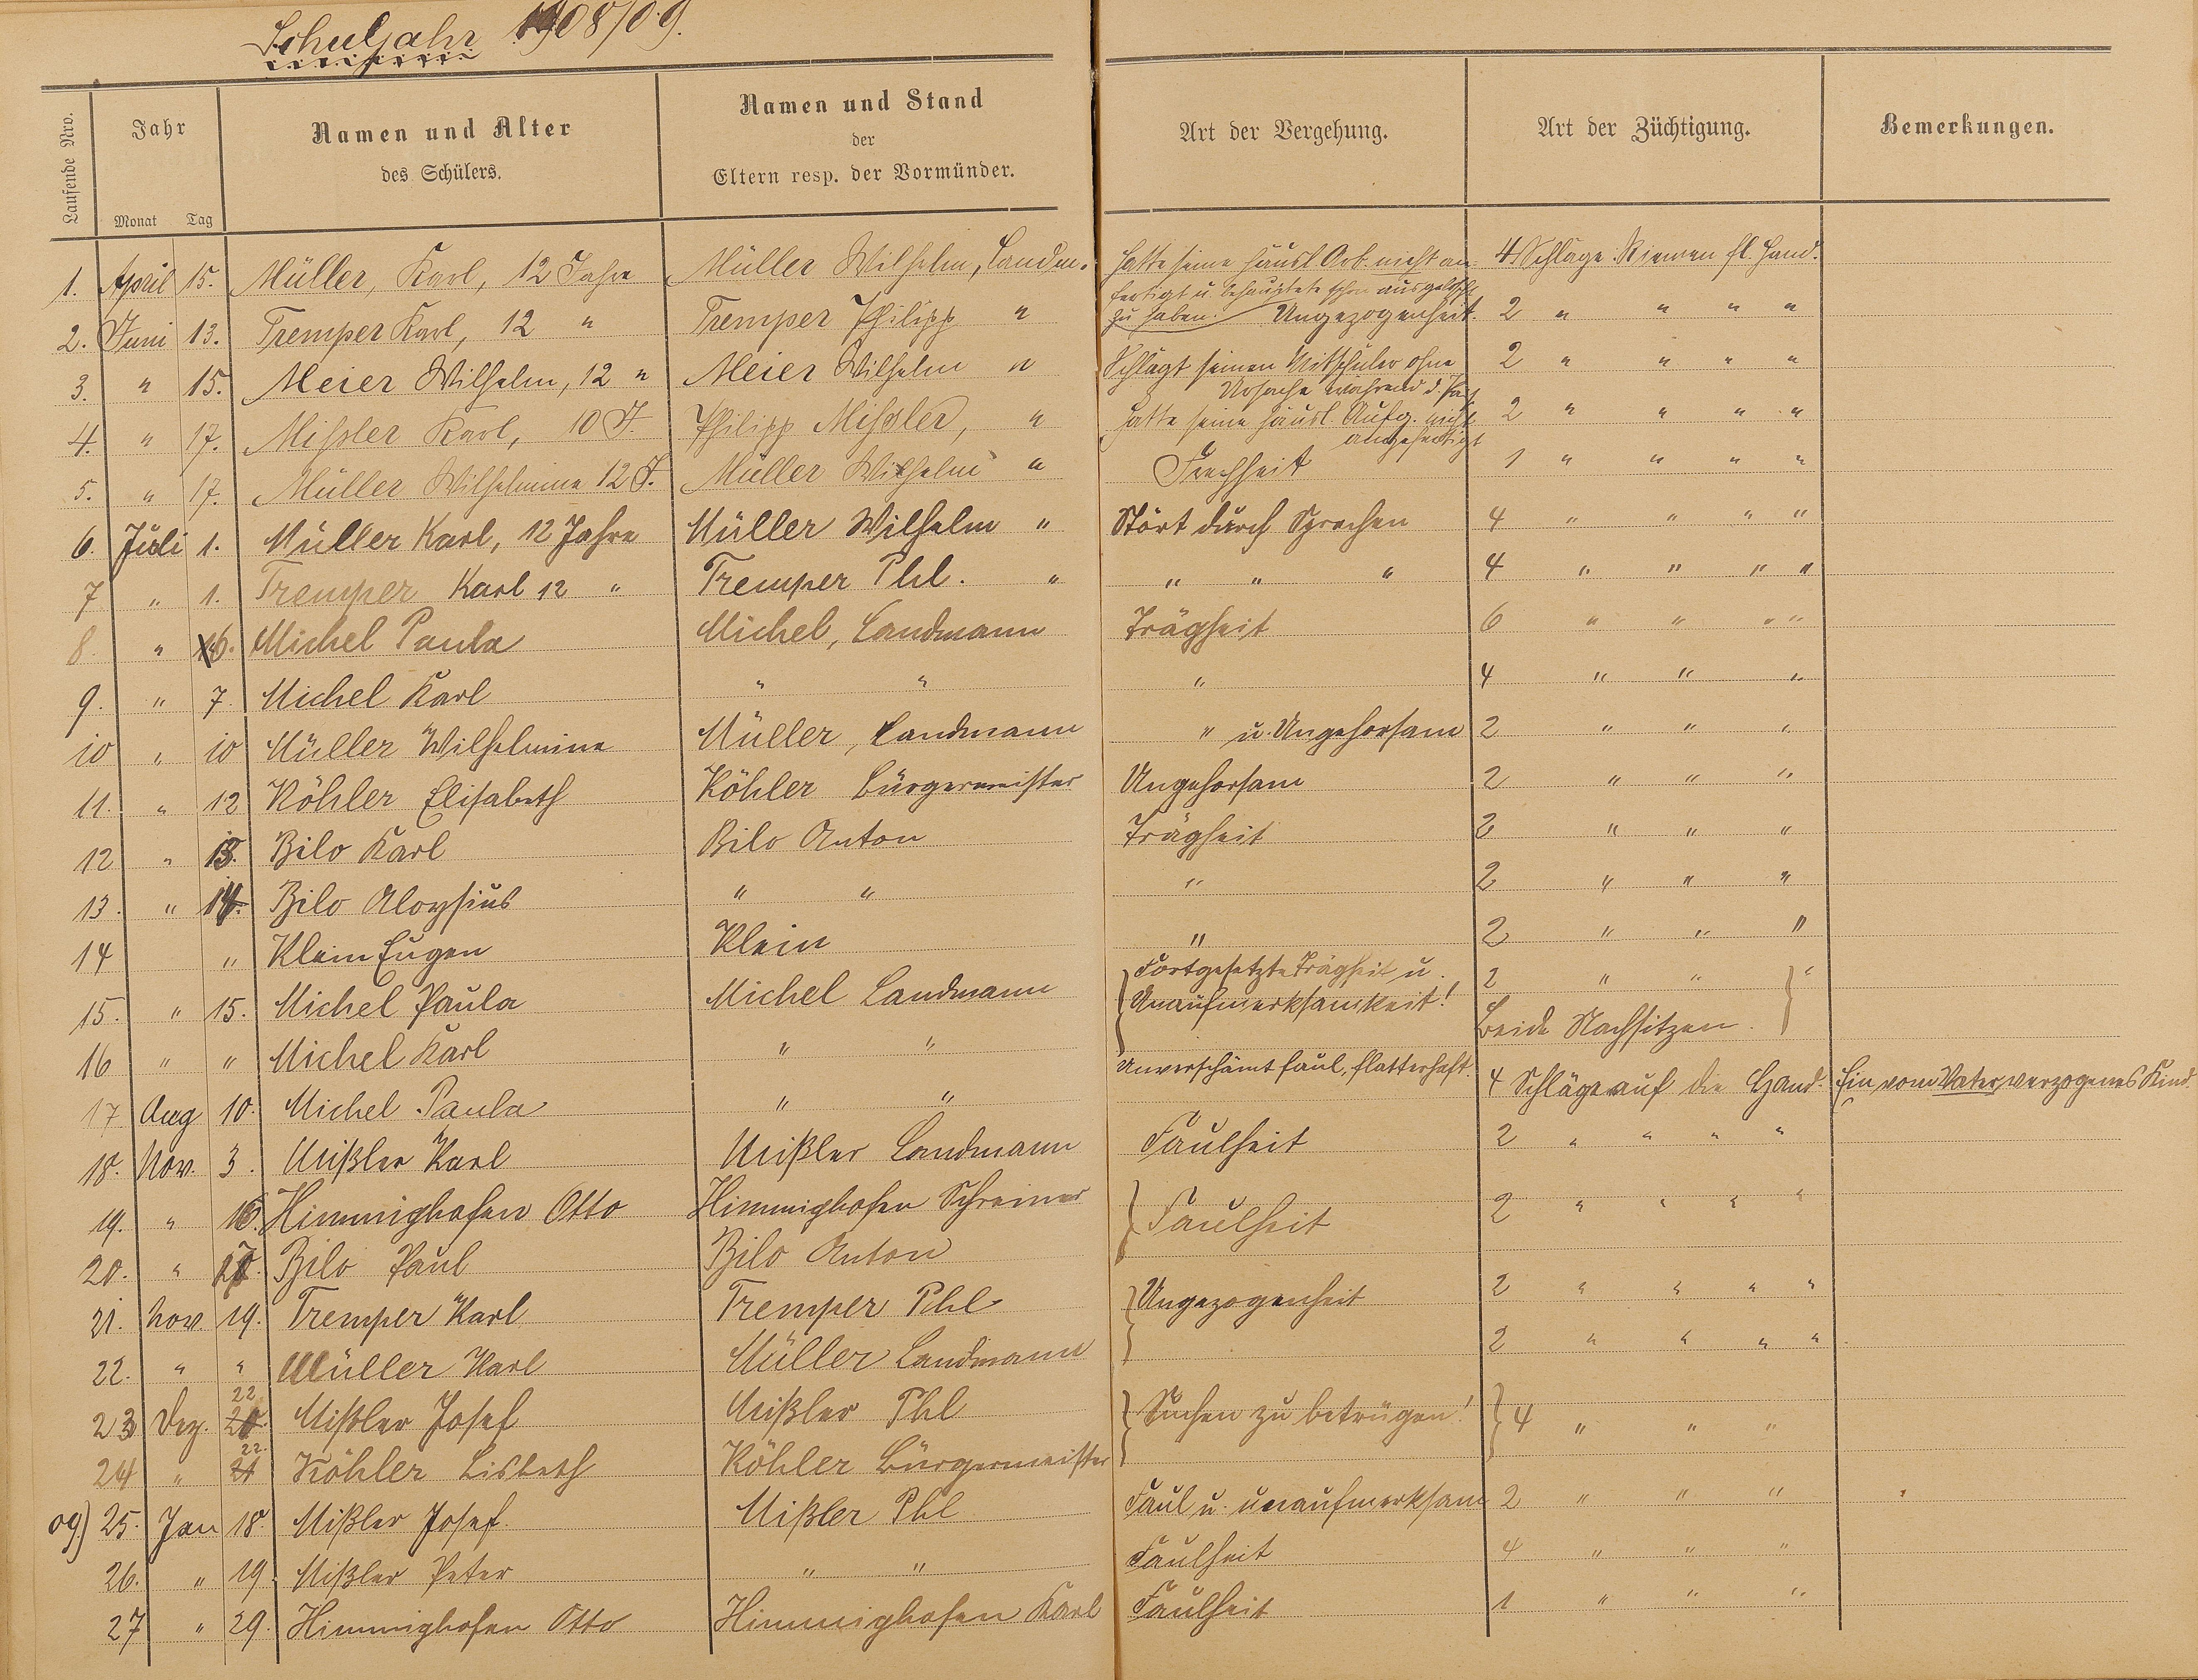 Schuljahr 1908/09.
Laufende Nro.
Jahr
Monat Tag
Namen und Alter
des Schülers.
Namen und Stand
der
Eltern resp. der Vormünder.
Art der Vergehung.
Art der Züchtigung.
Bemerkungen.
1. April 15. Müller, Karl, 12 Jahre Müller Wilhelm, Landm. hatte seine häusl Arb. nicht an- 4 Schläge Riemen fl. Hand.
fertigt u. behauptete schon ausgelöscht
2. Juni 13. Tremper Karl, 12 " Tremper Philipp " zu haben. Ungezogenheit. 2 " " " "
3. " 15. Meier Wilhelm, 12 " Meier Wilhelm " Schlägt seinen Mitschüler ohne 2 " " " "
Ursache während d.
4. " 17. Mißler Karl, 10 J. Philipp Mißler, " hatte seine häusl. Aufg. nicht 2 " " " "
angefertigt
5. " 17. Müller Wilhelmine 12 J. Müller Wilhelm " Frechheit 1 " " " "
6. Juli 1. Müller Karl, 12 Jahre Müller Wilhelm " Stört durch Sprechen 4 " " " "
7 " 1. Tremper Karl 12 " Tremper Phl. " " " " 4 " " " "
8. " 6. Michel Paula Michel, Landmann Trägheit 6 " " " "
9. " 7. Michel Karl " " " 4 " " "
10 " 10 Müller Wilhelmine Müller, Landmann " u. Ungehorsam 2 " " "
11. " 12 Köhler Elisabeth Köhler Bürgermeister Ungehorsam 2 " " "
12 " 13. Bilo Karl Bilo Anton Trägheit 2 " " "
13. " 14. Bilo Aloysius " " " 2 " " "
14 " Klein Eugen Klein " 2 " " "
15. " 15. Michel Paula Michel Landmann Fortgesetzte Trägheit u. 2 " " "
Unaufmerksamkeit!
16 " " Michel Karl " " Beide Nachsitzen.
17 Aug 10. Michel Paula " " Unverschämt faul, flatterhaft. 4 Schläge auf die Hand. Ein vom Vater verzogenes Kind.
18. Nov. 3. Mißler Karl Mißler Landmann Faulheit 2 " " " "
19. " 16. Himmighofen Otto Himmighofen Schreiner Faulheit 2 " " " "
20. " 17. Bilo Paul Bilo Anton
21. Nov. 19. Tremper Karl Tremper Phl Ungezogenheit 2 " " " "
22. " " Müller Karl Müller Landmann 2 " " " "
23 Dez. 22. Mißler Josef Mißler Phl Suchen zu betrügen! 4 " " "
24 " 22. Köhler Lisbeth Köhler Bürgermeister
09) 25. Jan 18. Mißler Josef. Mißler Phl Faul u. unaufmerksam 2 " " "
26. " 19. Mißler Peter " " Faulheit 4 " " "
27 " 29. Himmighofen Otto Himmighofen Karl Faulheit 1 " " "